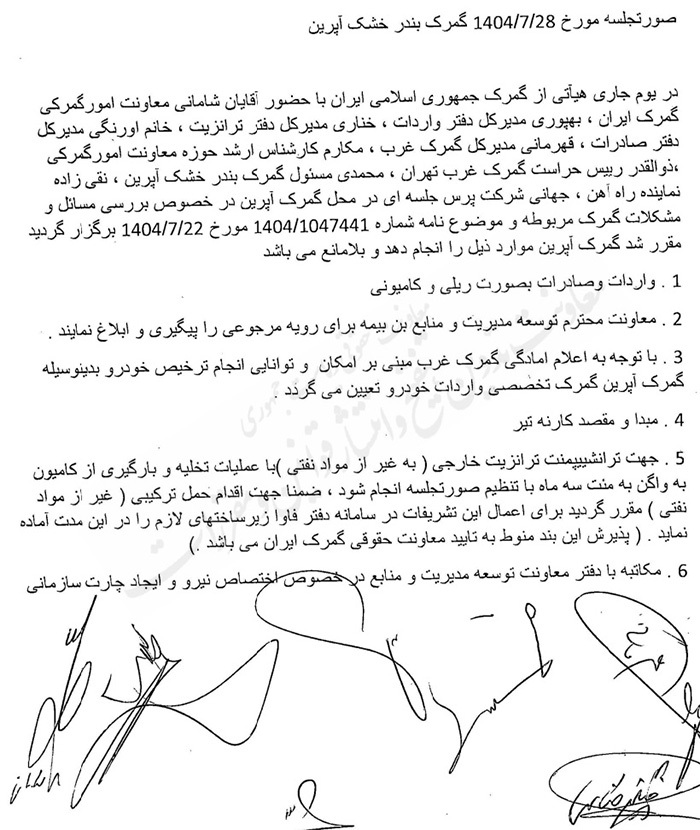 صورتجلسه مورخ 1404/7/28 گمرک بندر خشک آپرین
در یوم جاری هیأتی از گمرک جمهوری اسلامی ایران با حضور آقایان شامانی معاونت امورگمرکی
گمرک ایران ، بهپوری مدیرکل دفتر واردات ، خناری مدیرکل دفتر ترانزیت ، خانم اورنگی مدیرکل
دفتر صادرات ، قهرمانی مدیرکل گمرک غرب ، مکارم کارشناس ارشد حوزه معاونت امورگمرکی
،ذوالقدر رییس حراست گمرک غرب تهران ، محمدی مسئول گمرک بندر خشک آپرین ، نقی زاده
نماینده راه آهن ، جهانی شرکت پرس جلسه ای در محل گمرک آپرین در خصوص بررسی مسائل و
مشکلات گمرک مربوطه و موضوع نامه شماره 1404/1047441 مورخ 1404/7/22 برگزار گردید
مقرر شد گمرک آپرین موارد ذیل را انجام دهد و بلامانع می باشد
1 . واردات وصادرات بصورت ریلی و کامیونی
2 . معاونت محترم توسعه مدیریت و منابع بن بیمه برای رویه مرجوعی را پیگیری و ابلاغ نمایند .
3 . با توجه به اعلام امادگی گمرک غرب مبنی بر امکان و توانایی انجام ترخیص خودرو بدینوسیله
گمرک آپرین گمرک تخصصی واردات خودرو تعیین می گردد .
4 . مبدا و مقصد کارنه تیر
5 . جهت ترانشیپمنت ترانزیت خارجی ( به غیر از مواد نفتی )با عملیات تخلیه و بارگیری از کامیون
به واگن به مدت سه ماه با تنظیم صورتجلسه انجام شود ، ضمنا جهت اقدام حمل ترکیبی ( غیر از مواد
نفتی ) مقرر گردید برای اعمال این تشریفات در سامانه دفتر فاوا زیرساختهای لازم را در این مدت آماده
نماید . ( پذیرش این بند منوط به تایید معاونت حقوقی گمرک ایران می باشد .)
6 . مکاتبه با دفتر معاونت توسعه مدیریت و منابع در خصوص اختصاص نیرو و ایجاد چارت سازمانی